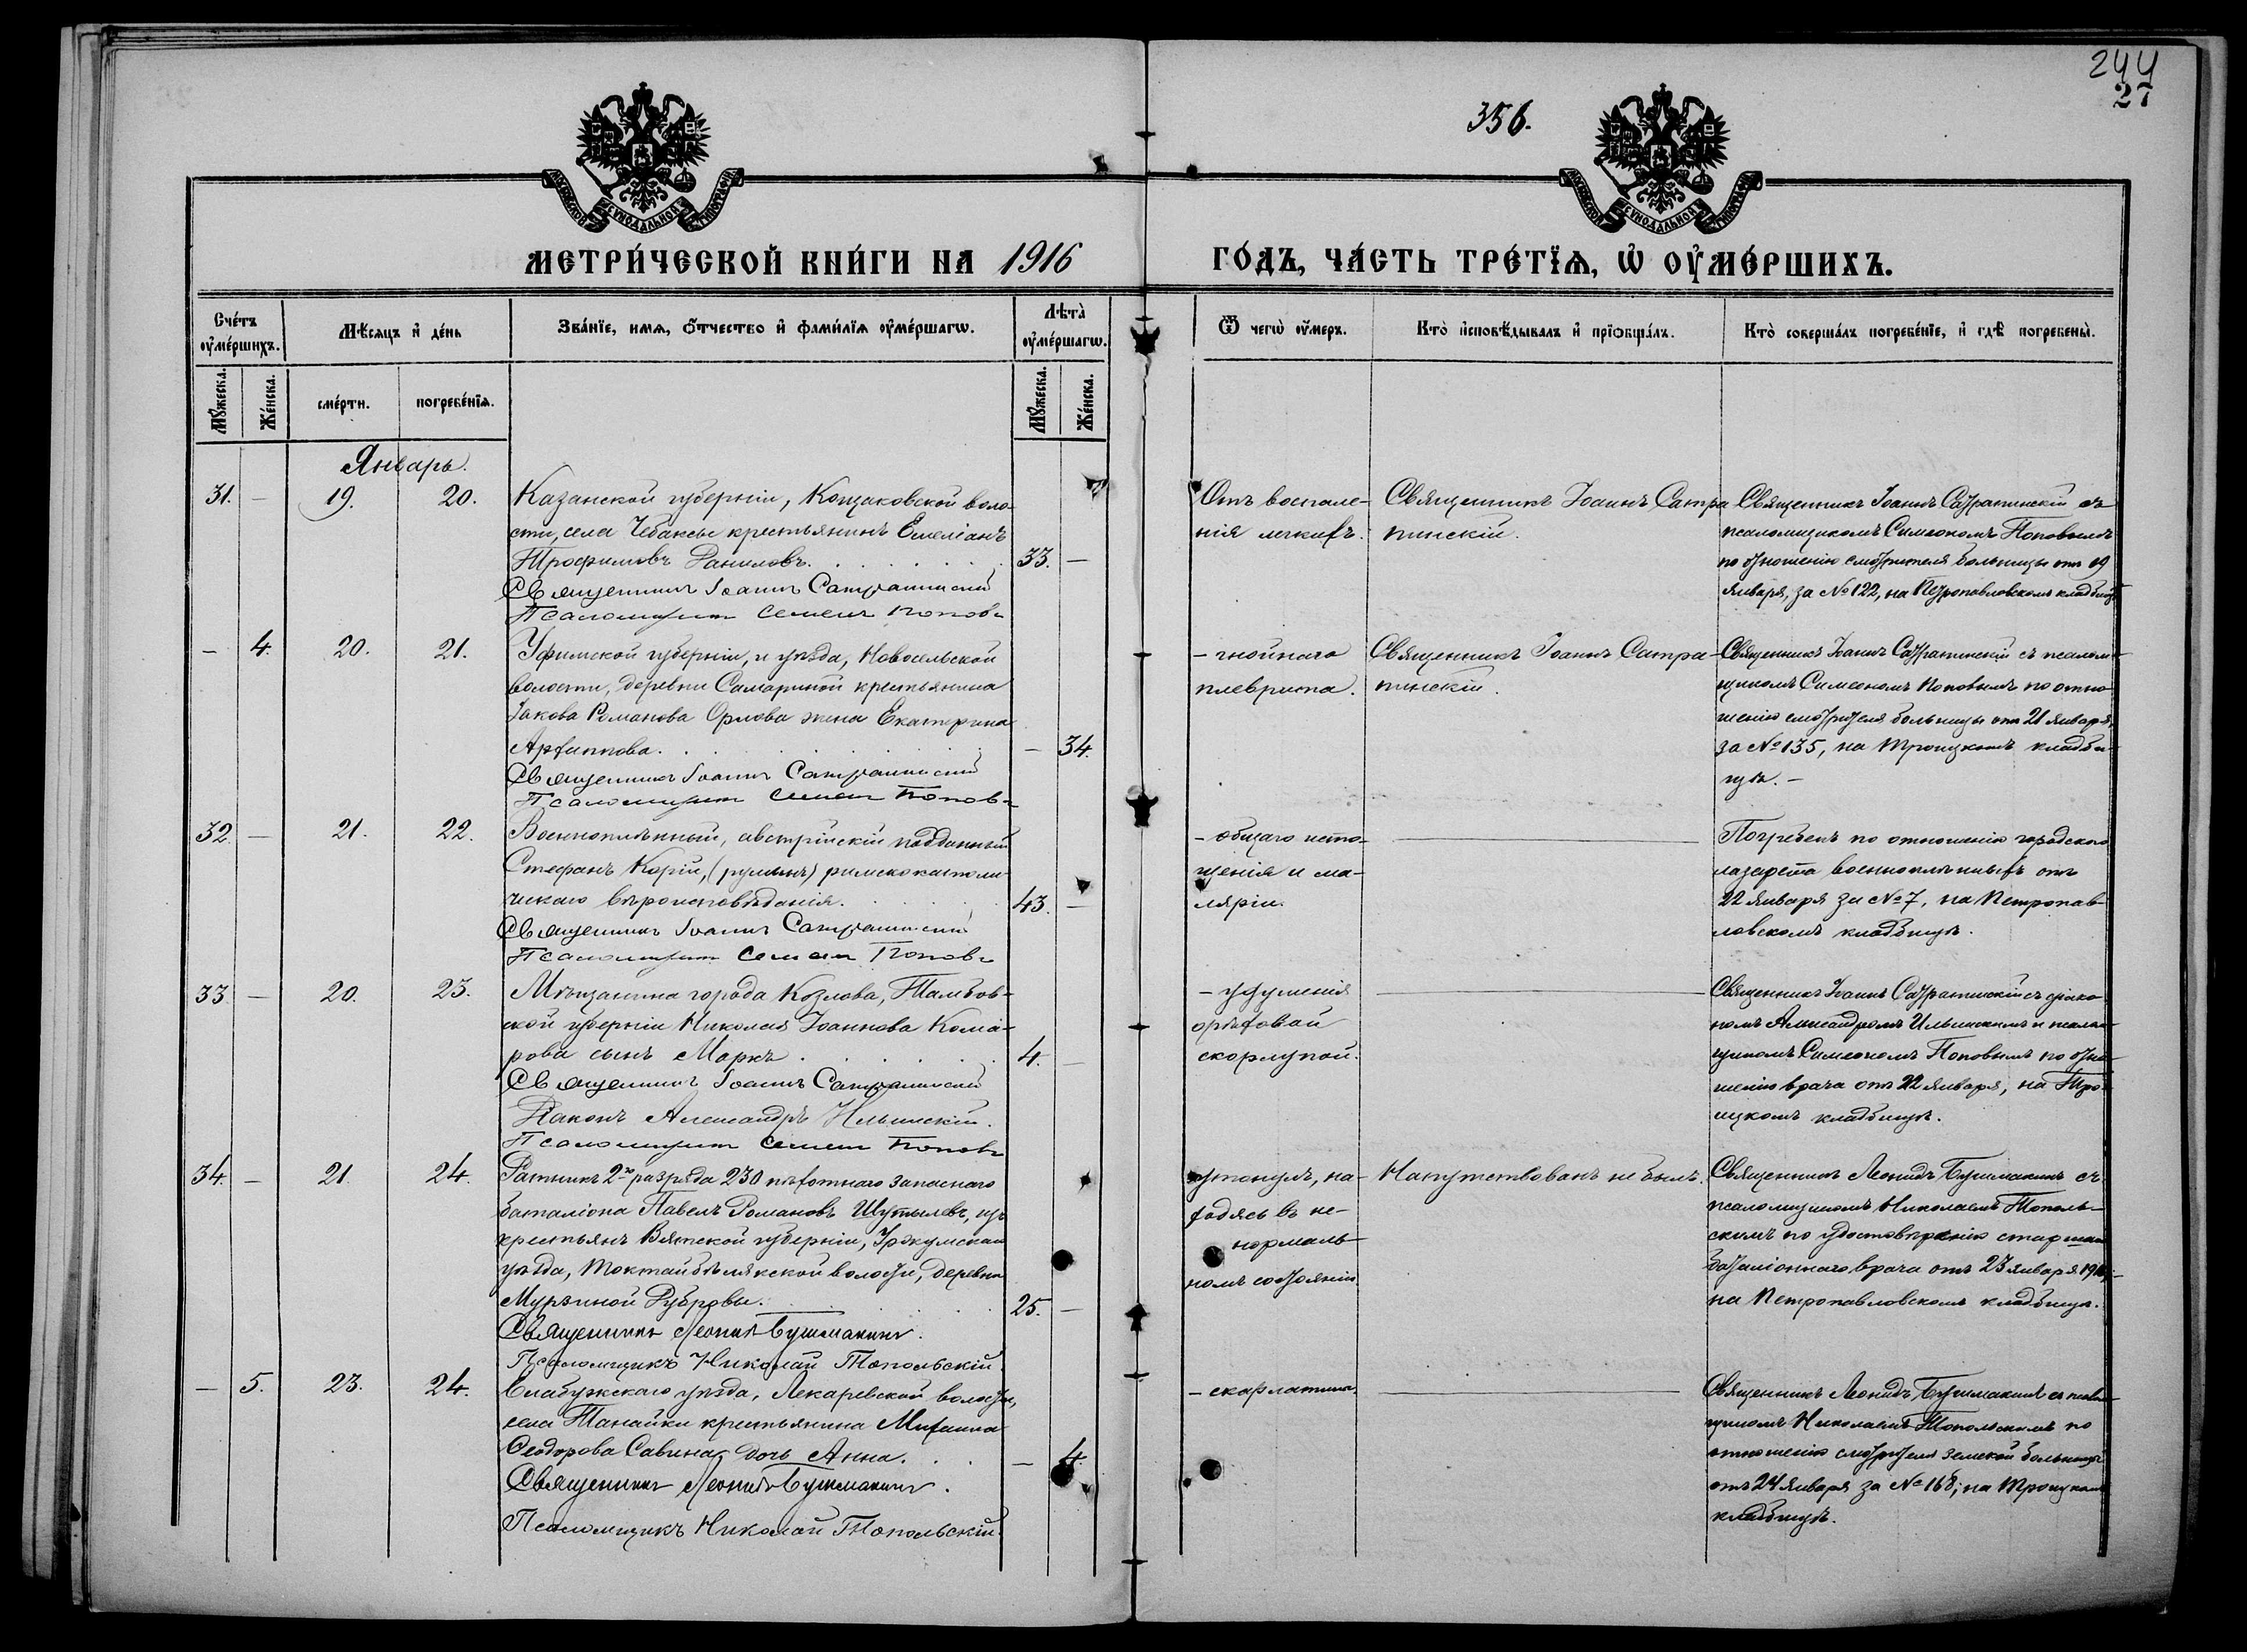 244
27
356.
МЕТРИ́ЧЕСКОЙ КНИ́ГИ НА 1916 ГО́ДЪ, ЧА́СТЬ ТРЕ́ТЇѦ, Ѡ҆ ОУ҆МЕ́РШИХЪ.
Сче́тъ оу҆ме́ршихъ.
Мѣ́сяцъ и҆ де́нь
Зва́нїе, имѧ, ѻ҆́тчество и҆ фамил́їѧ оу҆ме́ршагѡ.
Лѣ́та̀ оу҆ме́ршагѡ.
Ѿ чегѡ̀ оу҆́меръ.
Кто̀ и҆сповѣ́дывалъ и҆ прїѡбща́лъ.
Кто̀ соверша́лъ погребе́нїе, и҆ гдѣ̀ погребены̀.
Мꙋ́жеска.
Же́нска.
сме́рти.
погребе́нїѧ.
Мꙋ́жеска.
Же́нска.
Январь.
31. — 19. 20.
Казанской губерніи, Кощаковской воло-
сти, села Чебаксы крестьянинъ Емеліанъ
Трофимовъ Даниловъ. 33. —
Священникъ Іоаннъ Сатрапинскій
Псаломщикъ Семенъ Поповъ
Отъ воспале-
нія легкихъ.
Священникъ Іоаннъ Сатра
пинскій.
Священникъ Іоаннъ Сатрапинскій съ
псаломщикомъ Симеономъ Поповымъ
по отношенію смотрителя больницы отъ 19
января, за № 122, на Петропавловскомъ кладбищѣ
— 4. 20. 21.
Уфимской губерніи, и уѣзда, Новосельской
волости, деревни Самариной крестьянина
Іакова Романова Орлова жена Екатерина
Архиппова. — 34.
Священникъ Іоаннъ Сатрапинскій
Псаломщикъ Семенъ Поповъ
– гнойнаго
плеврита.
Священникъ Іоаннъ Сатра-
пинскій.
Священникъ Іоаннъ Сатрапинскій съ псалом-
щикомъ Симеономъ Поповымъ по отно-
шенію смотрителя больницы отъ 21 января,
за № 135, на Троицкомъ кладби-
щѣ. –
32 — 21. 22.
Военноплѣнный, австрійскій подданный
Стефанъ Корій, (румынъ) римскокатоли-
ческаго вѣроисповѣданія. 43. —
Священникъ Іоаннъ Сатрапинскій
Псаломщикъ Семенъ Поповъ
– общаго исто-
щенія и ма-
ляріи.
Погребенъ по отношенію городского
лазарета военноплѣнныхъ отъ
22 января за № 7, на Петропав-
ловскомъ кладбищѣ.
33 — 20. 23.
Мѣщанина города Козлова, Тамбов-
ской губерніи Николая Іоаннова Кома-
рова сынъ Маркъ. 4. —
Священникъ Іоаннъ Сатрапинскій
Діаконъ Александръ Ильинскій.
Псаломщикъ Семенъ Поповъ
– удушенія
орѣховой
скорлупой.
Священникъ Іоаннъ Сатрапинскій съ діако-
номъ Александромъ Ильинскимъ и псалом-
щикомъ Симеономъ Поповымъ по отно-
шенію врача отъ 22 января, на Тро-
ицкомъ кладбищѣ.
34. — 21. 24.
Ратникъ 2го разряда 230 пѣхотнаго запаснаго
баталіона Павелъ Романовъ Шутылевъ, изъ
крестьянъ Вятской губерніи, Уржумскаго
уѣзда, Токтайбѣлякской волости, деревни
25. —
Священникъ Леонидъ Бушмакинъ.
Псаломщикъ Николай Топольскій.
утонулъ, на-
ходясь въ не-
нормаль-
номъ состояніи
Напутствованъ не былъ.
Священникъ Леонидъ Бушмакинъ съ
псаломщикомъ Николаемъ Тополь-
скимъ по удостовѣренію старшаго
баталіоннаго врача отъ 23 января 1916,
на Петропавловскомъ кладбищѣ.
— 5. 23. 24.
Елабужскаго уѣзда, Лекаревской волости,
села Танайки крестьянина Михаила
Ѳеодорова Савина дочь Анна. — 4.
Священникъ Леонидъ Бушмакинъ.
Псаломщикъ Николай Топольскій.
– скарлатина.
Священникъ Леонидъ Бушмакинъ съ псалом-
щикомъ Николаемъ Топольскимъ по
отношенію смотрителя земской больницы
отъ 24 января за № 168, на Троицкомъ
кладбищѣ.